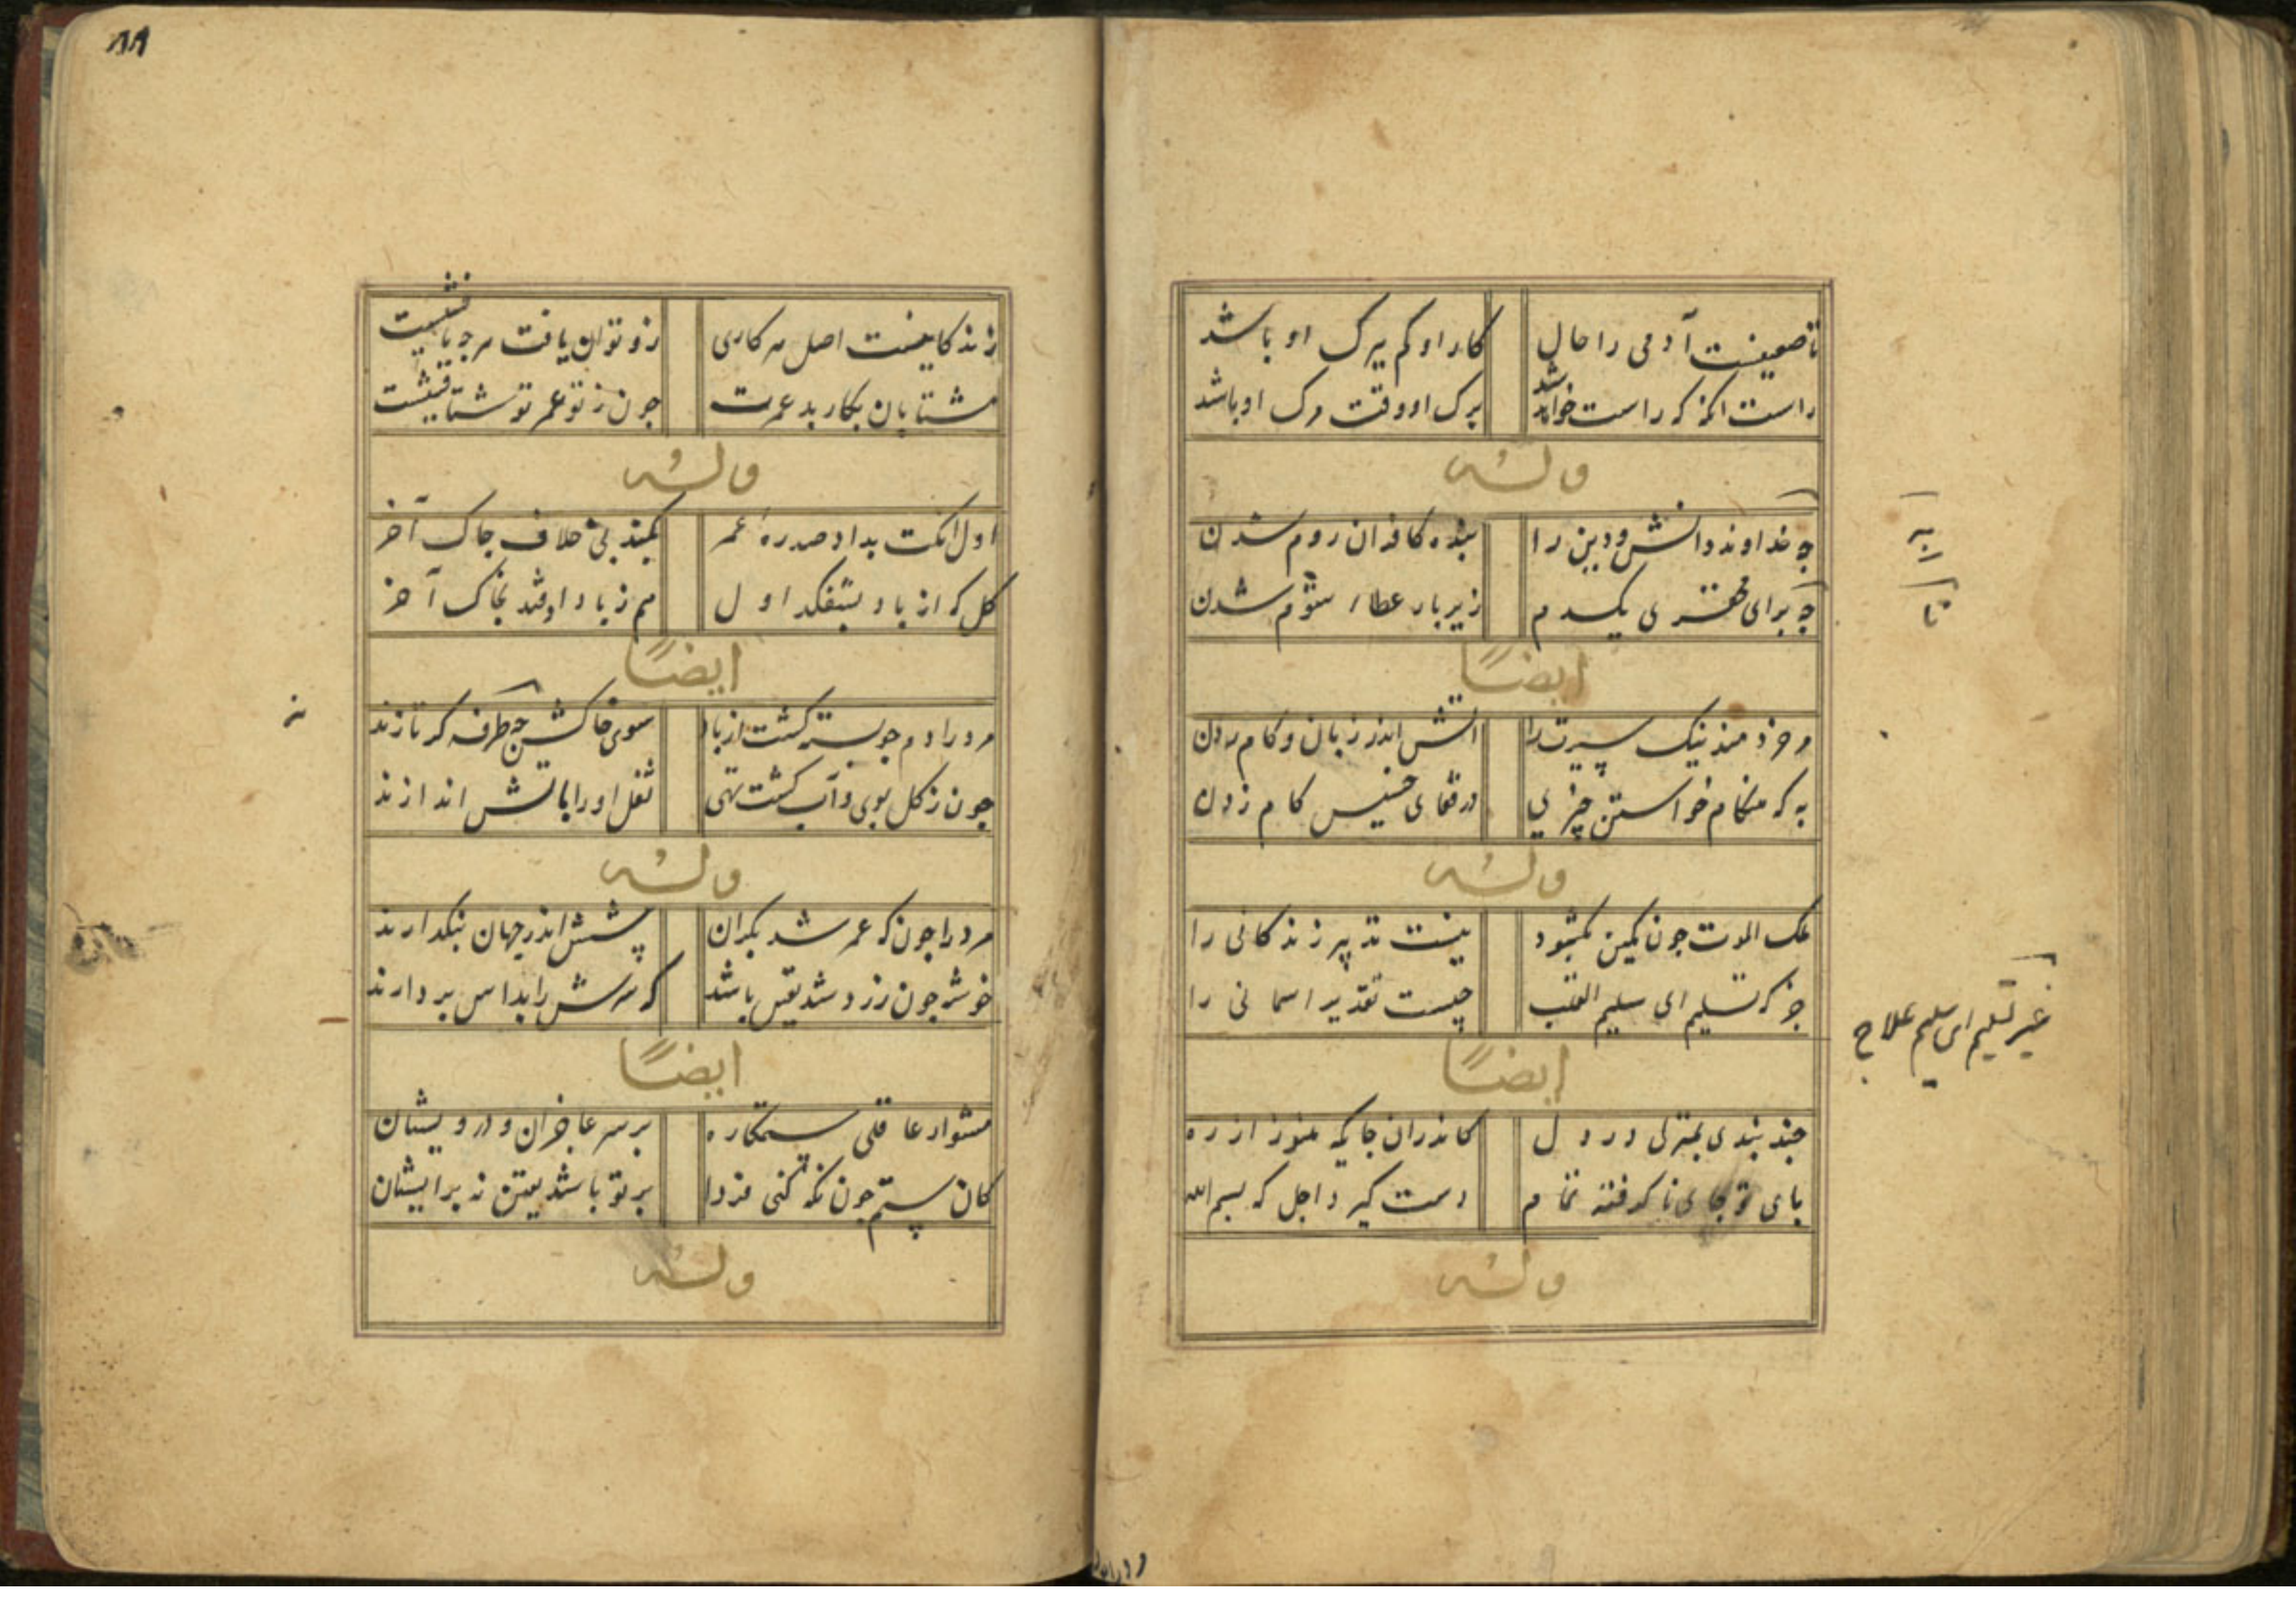 تا ضعیفست آدمی را حال
کار او کم ببرک او باشد
راست انکه که راست خواهد شد
برک او وقت مرک او باشد
وله
چه خداوند دانش و دین را
بنده کافران روم شدن
چه برای محقری یکدم
زیر بار عطاء شوم شدن
ایضاً
مر خردمند نیک سیرت را
اتش اندر زبان و کام زدن
به که هنکام خواستن چیزی
در قفای خسیس کام زدن
وله
ملک الموت چون کمین بکشود
نیست تدبیر زندکانی را
جز که تسلیم ای سلیم القلب
چیست تقدیر اسمانی را
ایضاً
چند بندی بمنزلی در دل
کاندران جایکه هنوز از ره
بای تو جای نا کرفته تمام
دست کیرد اجل که بسم الله
وله
به
تا
غیر تسلیم ای سلیم علاج
۸۸
زندکانیست اصل هر کاری
زو توان یافت هرچه یافتنیست
مشتابان بکار بد عمرت
چون ز تو عمر تو شتافتنیست
وله
اول انکت بداد صدره عمر
بکند بی خلاف چاک آخر
کل که از باد بشفکد اول
هم ز باد اوفتد بخاک آخر
ایضاً
مرد را دم چو بسته کشت از باد
سوی خاکش چه طرفه کر تازند
چون ز کل بوی و آب کشت تهی
ثفل او را باتش اندازند
وله
مرد را چون که عمر شد بکران
پشش اندر جهان بنکدارند
خوشه چون زرد شد یقین باشد
که سرش را بداس بردارند
ایضاً
مشو ار عاقلی ستمکاره
بر سر عاجزان و درویشان
کان ستم چون نکه کنی فردا
بر تو باشد یقین نه بر ایشان
وله